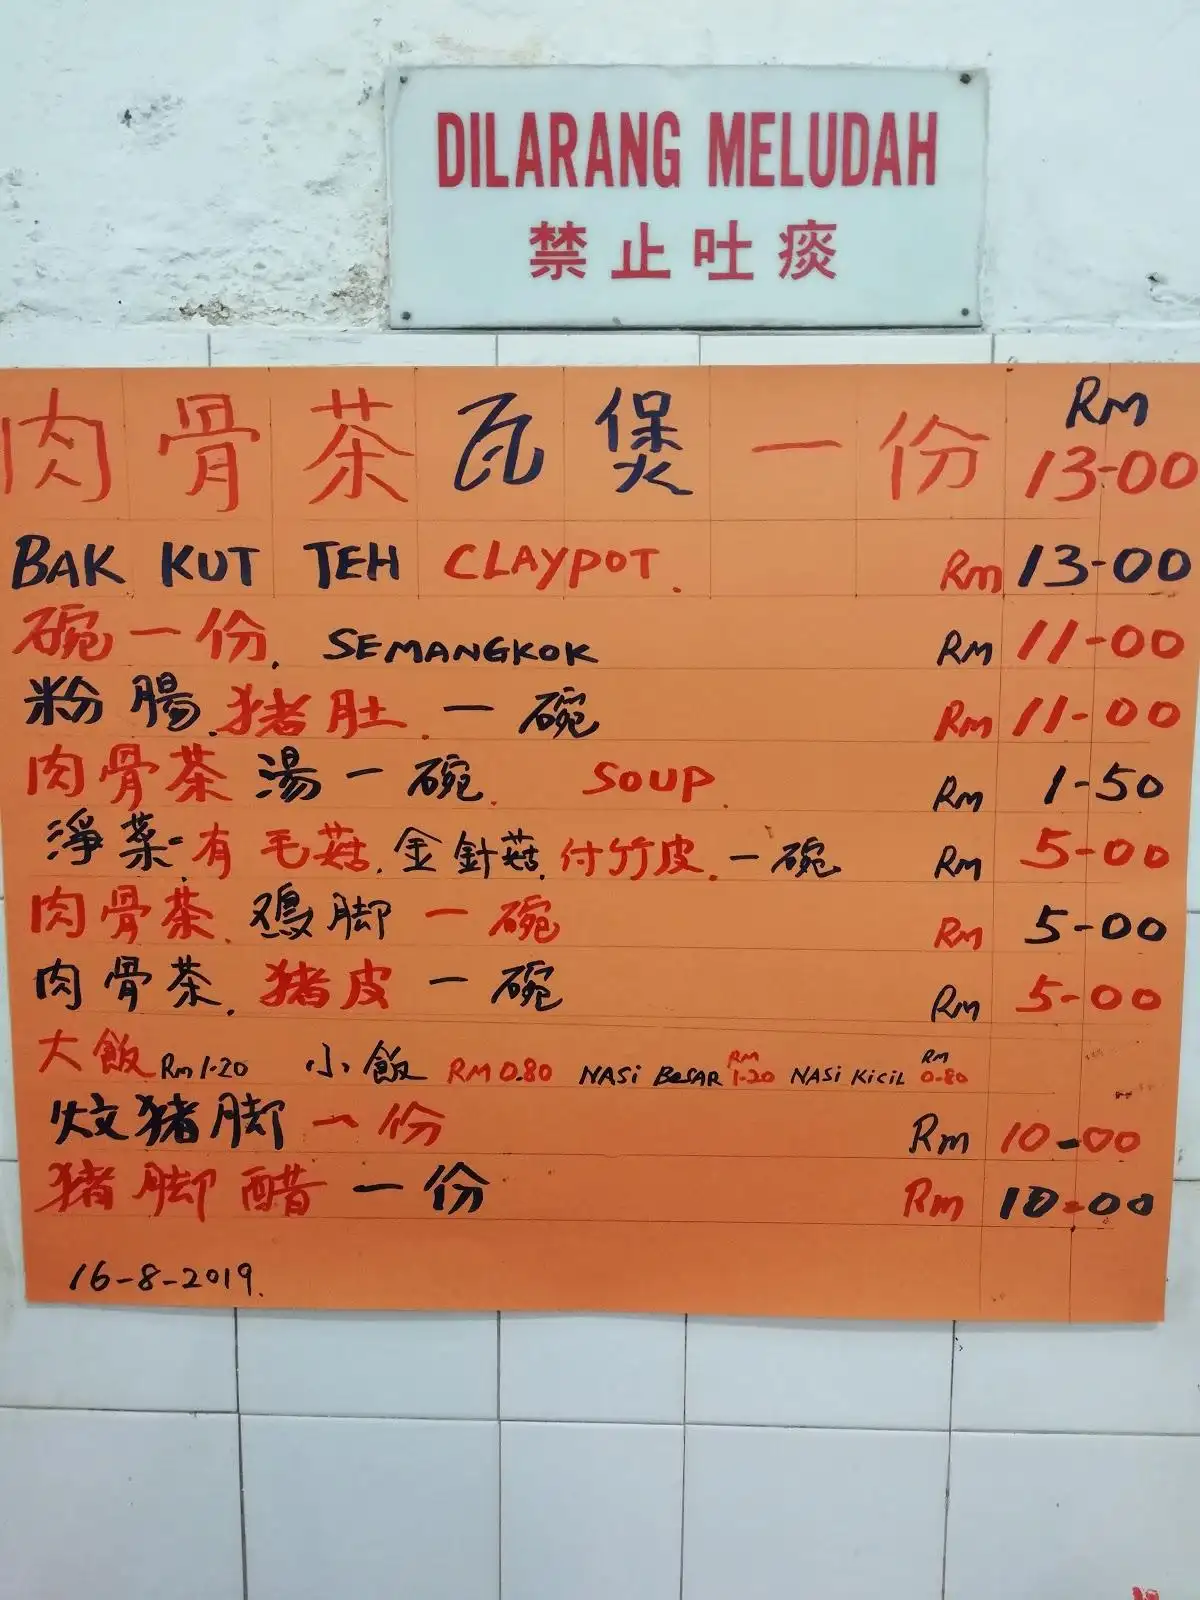 DILARANG MELUDAH
禁止吐痰
肉骨茶瓦煲一份 Rm 13-00
BAK KUT TEH CLAYPOT. Rm 13-00
碗一份. SEMANGKOK Rm 11-00
粉腸.猪肚.一碗 Rm 11-00
肉骨茶湯一碗. SOUP. Rm 1-50
淨菜=有毛菇.金針菇.付竹皮.一碗 Rm 5-00
肉骨茶.鷄脚一碗 Rm 5-00
肉骨茶.猪皮一碗 Rm 5-00
大飯 Rm 1.20 小飯 RM 0.80 NASi BESAR RM 1-20 NASi KiciL RM 0-80
炆猪脚一份 Rm 10-00
猪脚醋一份 Rm 10-00
16-8-2019.